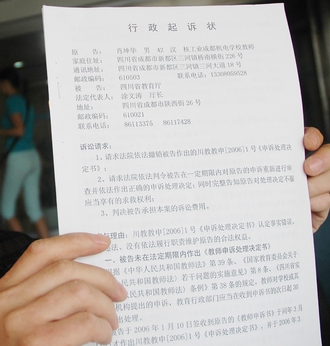 行政起诉状
原 告: 肖坤华 男 43 汉 核工业成都机电学校教师
家庭住址: 四川省成都市新都区三河镇桥南横街226号
通讯地址: 四川省成都市新都区三河镇三河大道18号
邮政编码: 610503 联系电话: 15308059528
被 告: 四川省教育厅
法定代表人: 涂文涛 厅长
地址: 四川省成都市陕西街26号
邮政编码: 610021
联系电话: 86113375 86117428
诉讼请求:
1、请求法院依法撤销被告作出的川教教申[2006]1号《申诉处理
决定书》;
2、请求法院依法判令被告在一定期限内对原告的申诉重新进行审
查并依法作出正确的申诉处理决定;同时完整告知原告对处理决定不服
应当享有的求救权利;
3、判决被告承担本案的诉讼费用。
与理由: 川教教申[2006]1号《申诉处理决定书》认定事实错误,
法、没有依法履行职责维护原告的合法权益。
一、被告未在法定期限内作出《教师申诉处理决定书》
根据《中华人民共和国教师法》第39条、《国家教育委员会关于
人民共和国教师法》若干问题的实施意见》第8条、《四川省实
民共和国教师法》条例》第38条的规定,教师对学校或其
机构提出的申诉,教育行政部门应当在收到申诉书的次日起30
出处理。
告于2006年1月10日签收到原告的《教师申诉书》于同年3月
川教教申[2006]1号《申诉处理决定书》,并于2006年3